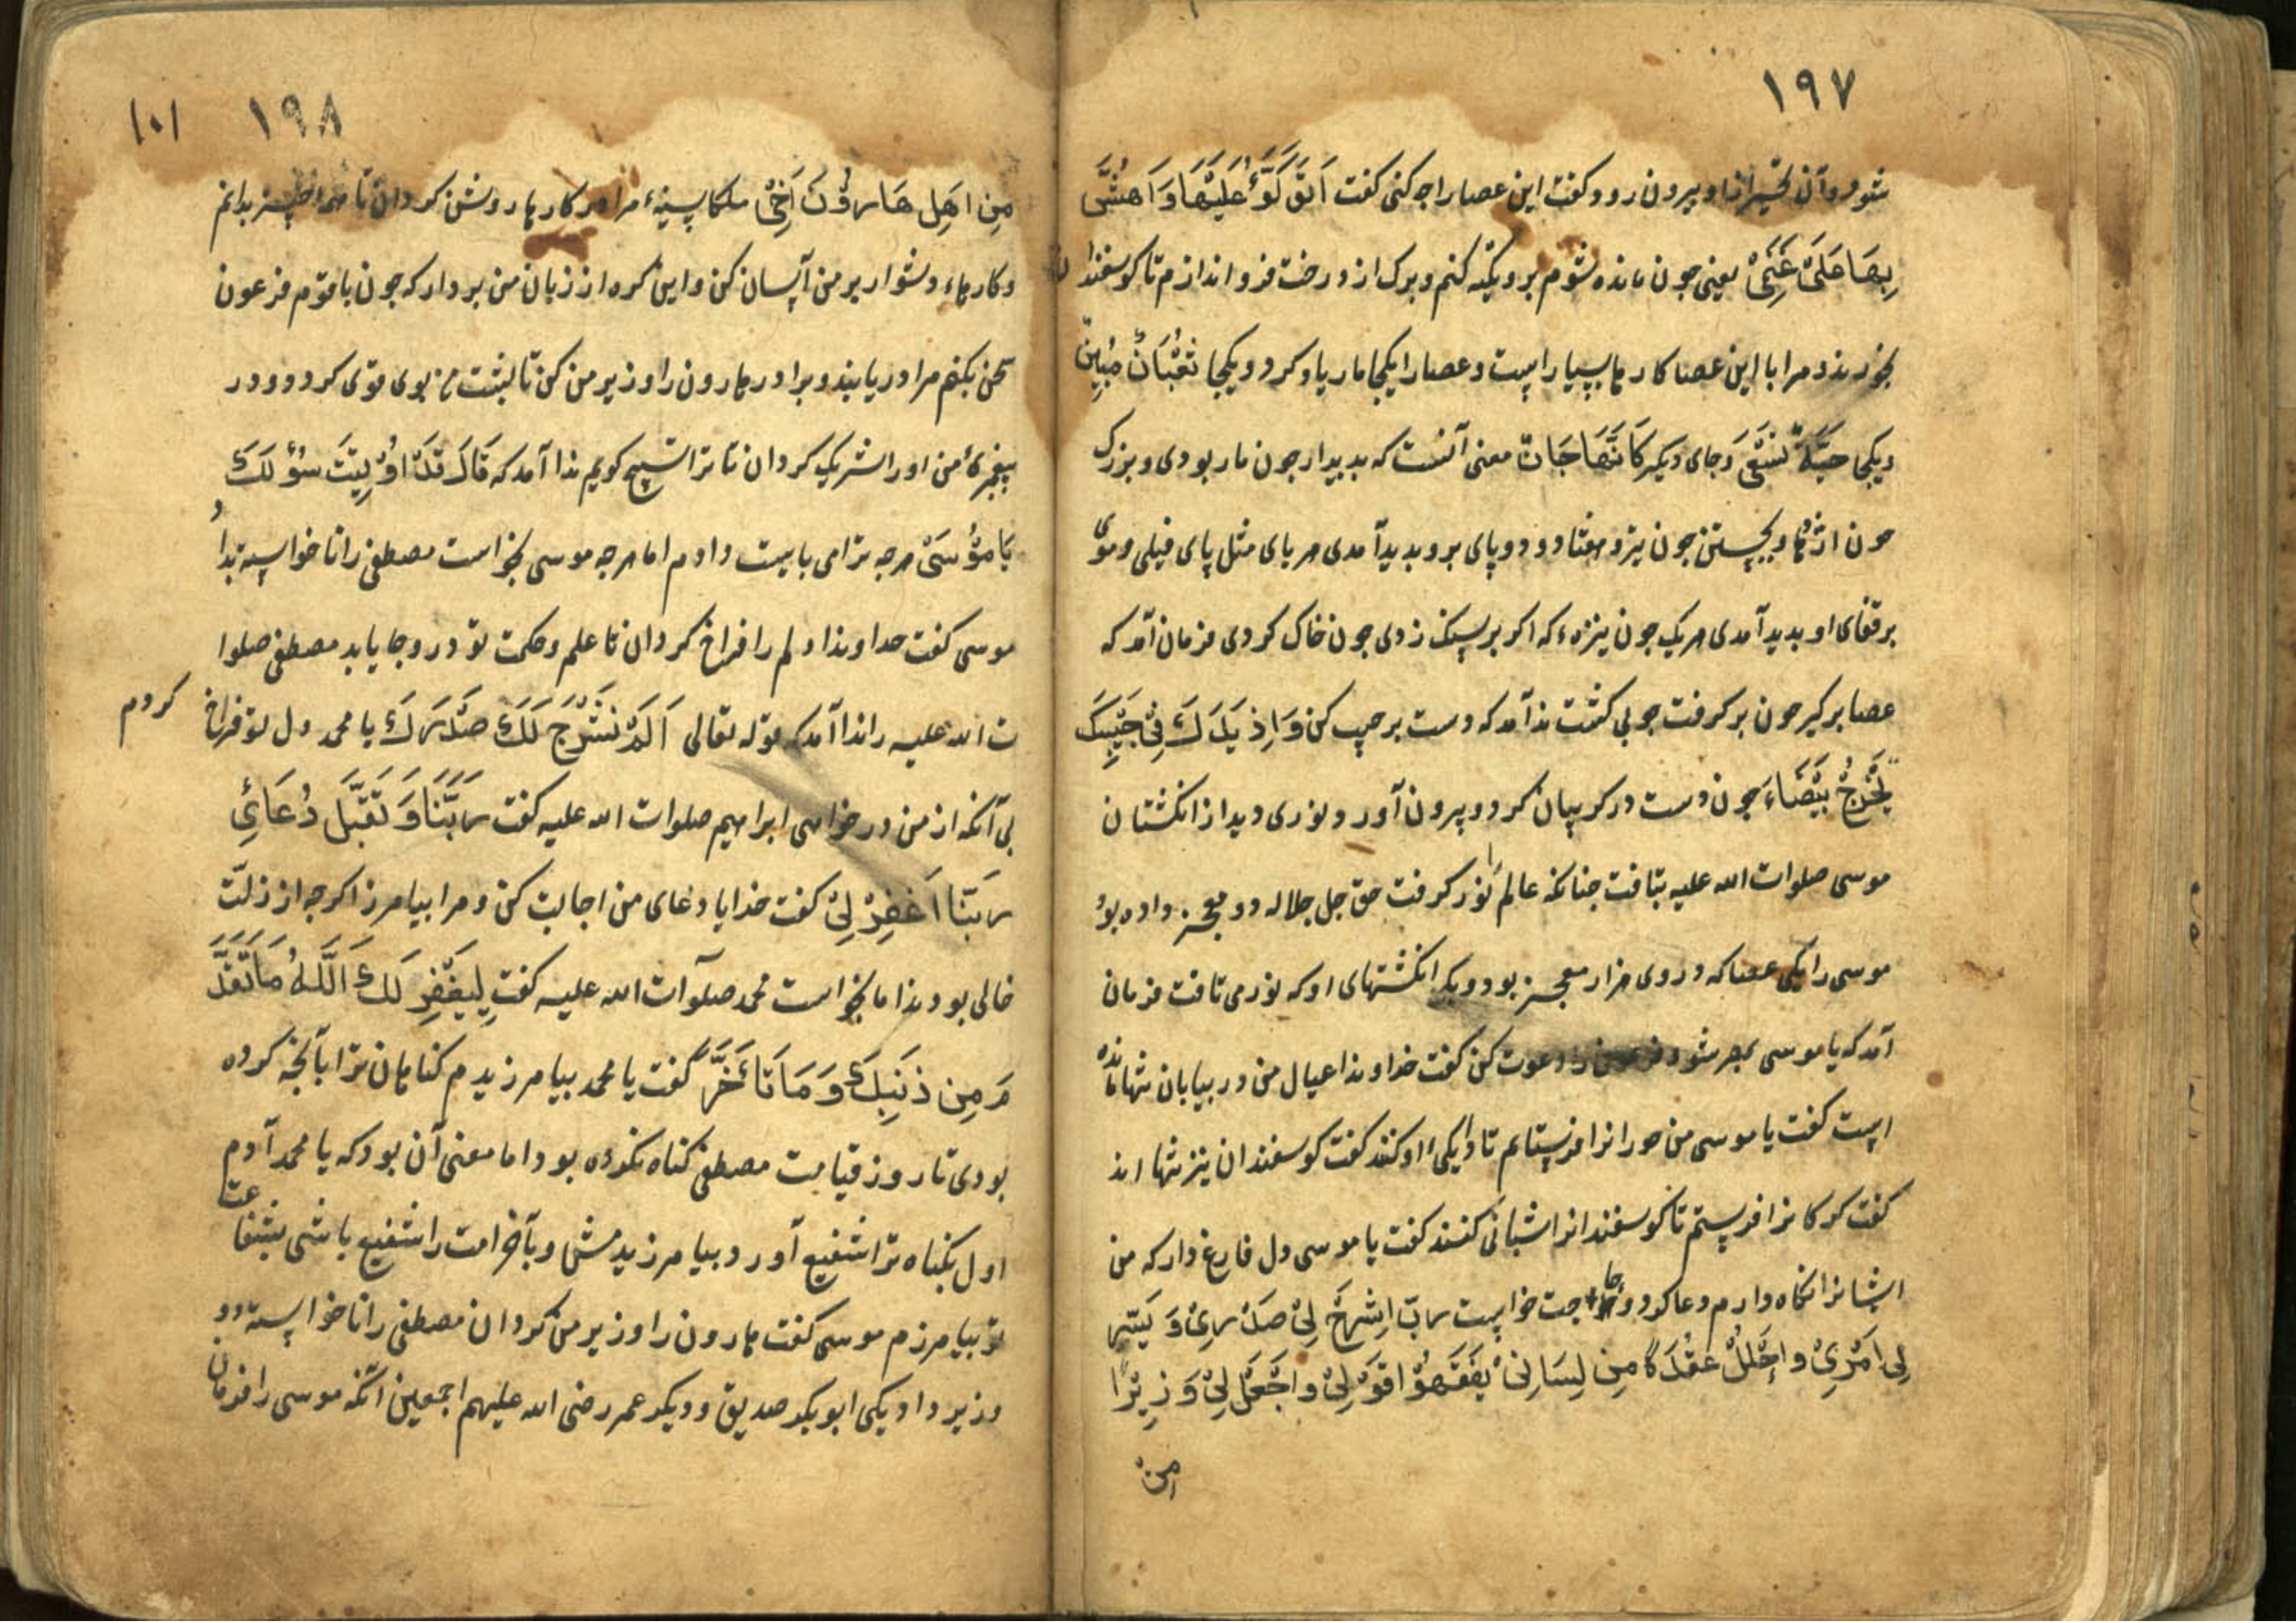 ١٩٧
شود و آن تحیر از او بیرون رود و کفت این عصا را چه کنی کفت اَتَوَکَّؤُ عَلَیْهَا وَ اَهُشُّ
بِهَا عَلَیٰ غَنَمِیْ یعنی جون مانده شوم برو تکیه کنم و برک از درخت فرو اندازم تا کوسفندان
بخورند و مرا با این عصا کارها بسیار است و عصا را یکجا مار یاد کرد و یکجا ثُعْبَانٌ مُبِینٌ
و یکجا حَیَّةٌ تَسْعٰی وَ جای دیکر کَاَنَّهَا جَانٌّ معنی آنست که بدیدار جون مار بودی و بزرک
جون اژدها و بجستن جون تیر و هفتاد و دو پای برو بدید آمدی هر پای مثل پای فیلی و موی
بر قفای او بدید آمدی هر یک جون نیزهء که اکر بر سنک زدی جون خاک کردی فرمان آمد که
عصا برکیر جون برکرفت جوبی کشت ندا آمد که دست بر جیب کن وَاِذ یَدَکَ فِیْ جَیْبِکَ
تَخْرُجْ بَیْضَاءَ جون دست در کریبان کرد و بیرون آورد نوری دید از انکشتان
موسی صلوات الله علیه بتافت جنانکه عالم نور کرفت حق جل جلاله دو معجز داده بود
موسی را یکی عصا که در وی هزار معجز بود و یکی انکشتهای او که نور می تافت فرمان
آمد که یا موسی بمصر شو و فرعون را دعوت کن کفت خداوندا عیال من در بیابان تنها مانده
است کفت یا موسی من حورانرا فرستایم تا دایکی او کنند کفت کوسفندان نیز تنها اند
کفت کرکانرا فرستم تا کوسفندانرا شبانی کنند کفت یا موسی دل فارغ دار که من
ایشانرا نکاه دارم دعا کرد و حاجت خواست رَبِّ اشْرَحْ لِیْ صَدْرِیْ وَ یَسِّرْ
لِی اَمْرِیْ وَ احْلُلْ عُقْدَةً مِن لِسَانِیْ یَفْقَهُوْا قَوْلِیْ وَ اجْعَلْ لِیْ وَزِیْرًا
من
١٩٨ ١٠١
مِن اَهْلِ هَارُوْنَ اَخِیْ ملکا سینهء مرا هر کارها روشن کردان تا همه چیز بدانم
و کارهاء دشوار بر من آسان کن و این کره از زبان من بردار که جون با قوم فرعون
سخن بکنم مرا دریابند و برادر هارون را وزیر من کن تا بشت من بوی قوی کردد و در
پیغمبریٔ من او را شریک کردان تا ترا تسبیح کویم ندا آمد که قَالَ قَدْ اُوْتِیْتَ سُؤْلَکَ
یَا مُوْسَیٰ هرچه ترا می بایست دادم اما هرجه موسی بخواست مصطفی را نا خواسته بداد
موسی کفت خداوندا دلم را فراخ کردان تا علم و حکمت تو در و جا یابد مصطفی صلوا
ت الله علیه را ندا آمد که قوله تعالی اَلَمْ نَشْرَحْ لَکَ صَدْرَکَ یا محمد دل تو فراخ کردم
بی آنکه از من درخواهی ابراهیم صلوات الله علیه کفت رَبَّنَا وَ تَقَبَّل دُعَائِی
رَبَّنَا اغْفِرْ لِیْ کفت خدایا دعای من اجابت کن و مرا بیامرز اکرجه از زلت
خالی بود ندا ما بخواست محمد صلوات الله علیه کفت لِیَغْفِرَ لَکَ اللَّهُ مَا تَقَدَّ
مَ مِن ذَنبِکَ وَ مَا تَأَخَّرَ کفت یا محمد بیامرزیدم کناهان ترا بآنچه کرده
بودی تا روز قیامت مصطفی کناه نکرده بود اما معنی آن بود که یا محمد آدم
اول بکناه ترا شفیع آورد بیامرزیدمش و بآخر امت را شفیع باشی بشفاعت
تو بیامرزم موسی کفت هارون را وزیر من کردان مصطفی را نا خواسته دو
وزیر داد یکی ابوبکر صدیق و دیکر عمر رضی الله علیهم اجمعین آنکه موسی را فرمان